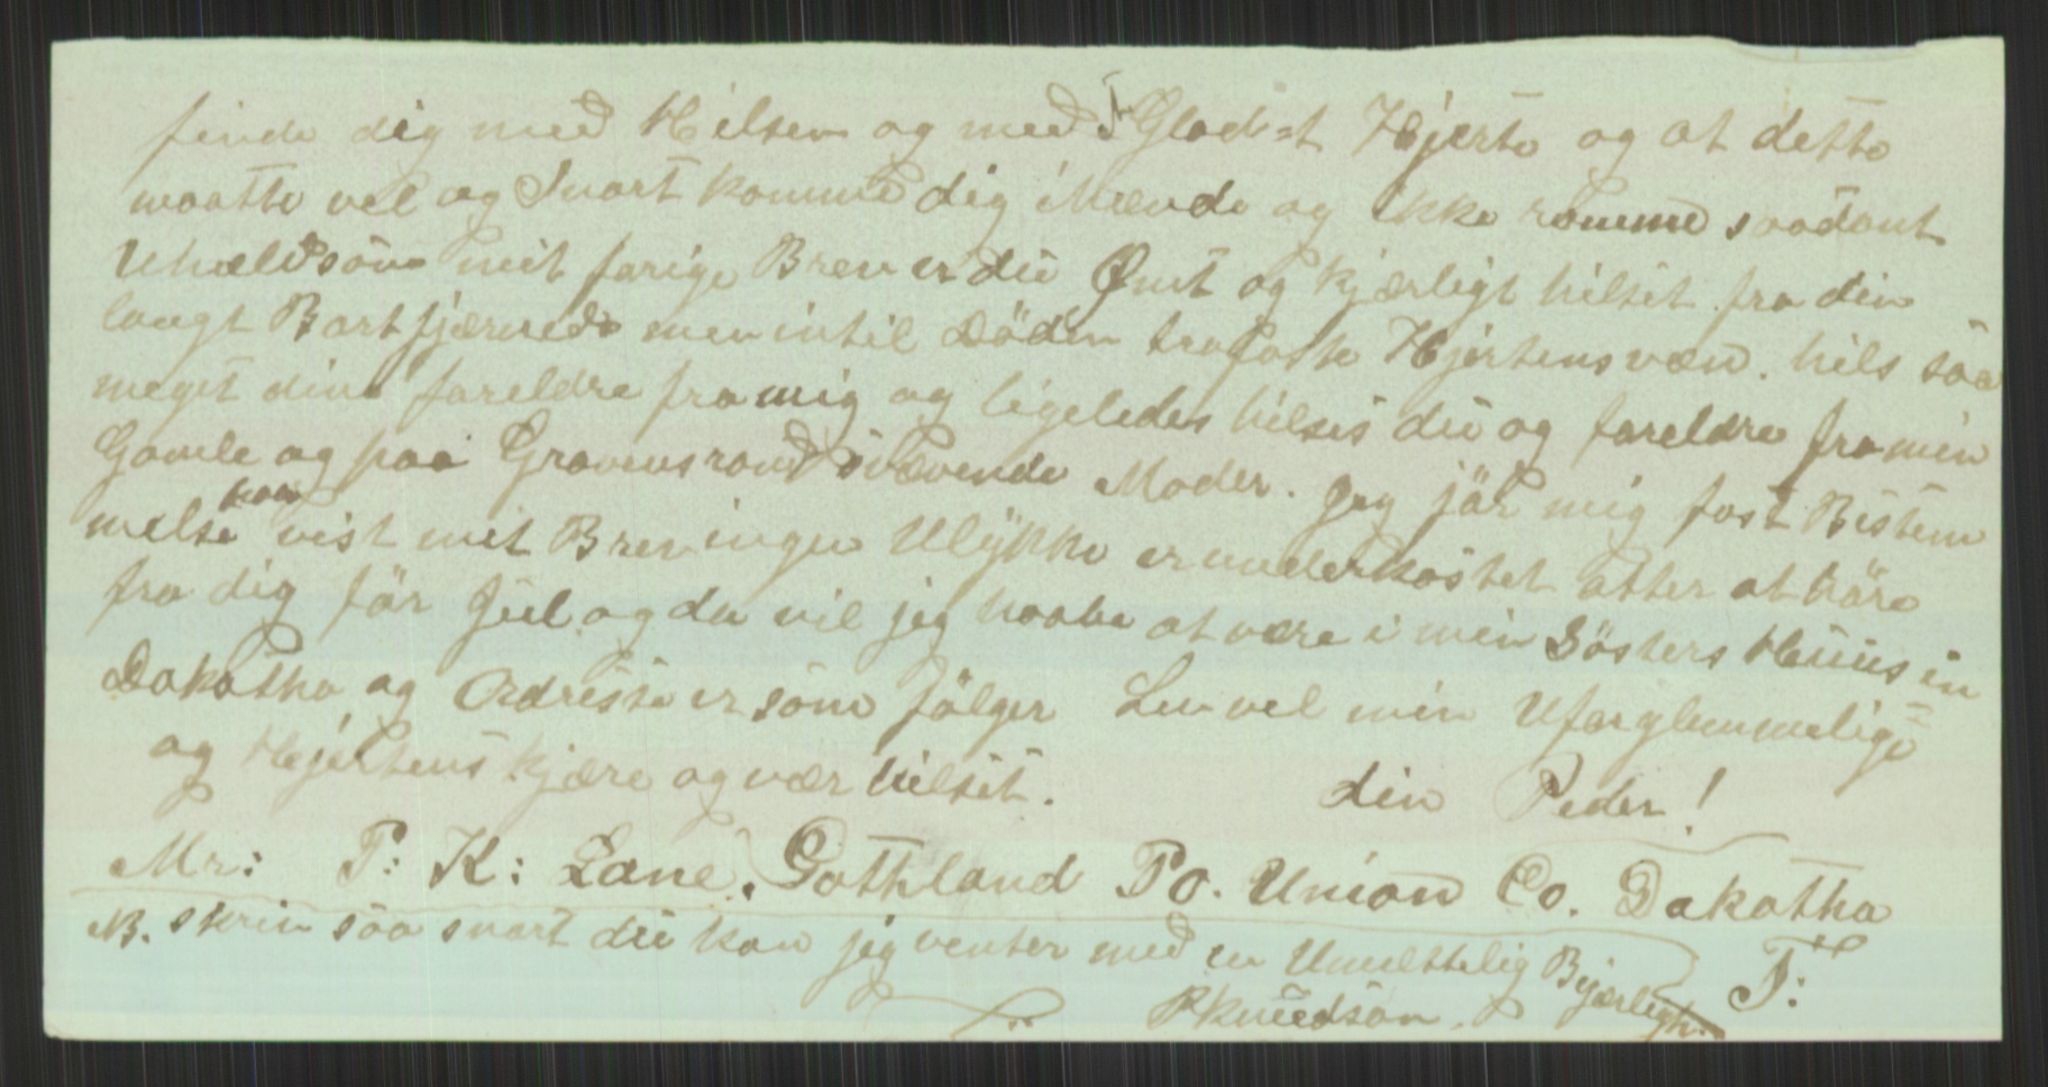 finde dig med Hilsen og med Glad=t Hjerte og at dette
maatte vel og Snart komme dig ihænde og ikke komme saadant
Uheld som mit forige Brev er du Ømt og kjærligt hilset fra din
langt Bortfjærnede men intil Döden trofaste Hjertensven. hils saa
meget dine foreldre fra mig og ligeledes hilses du og foreldre fra min
Gamle og paa Gravensrand svævende Moder. Jeg jör mig fast Bestem
melse paa vist mit Brev ingen Ulÿkke er underkastet atter at höre
fra dig för Jul og da vil jeg haabe at være i min Sösters Huus in
Dakotha og Adresse er som fölger Lev vel min Uforglemmelige
og Hjertens kjære og vær hilset. din Peder!
Mr: P: K: Lane. Gothland Po. Union Co. Dakotha
NB. skriv saa snart du kan jeg venter med en Umettelig Bejærligh. T:
P Knudson.